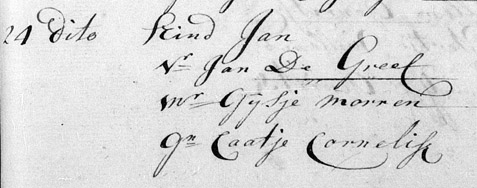 24 Dito Kind Jan
Vr Jan De Greef
mr Gijsje morren
gn Caatje Cornelisz